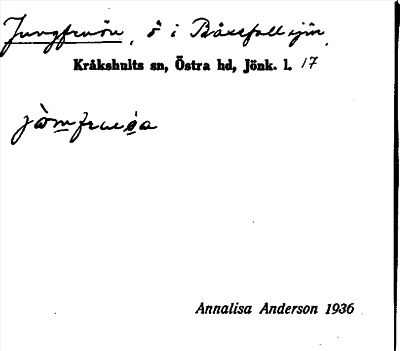 Jungfruön, ö i Bäsefall sjön,
Kråkshults sn, Östra hd, Jönk. l. 17
jòmfrueòa
Annalisa Anderson 1936